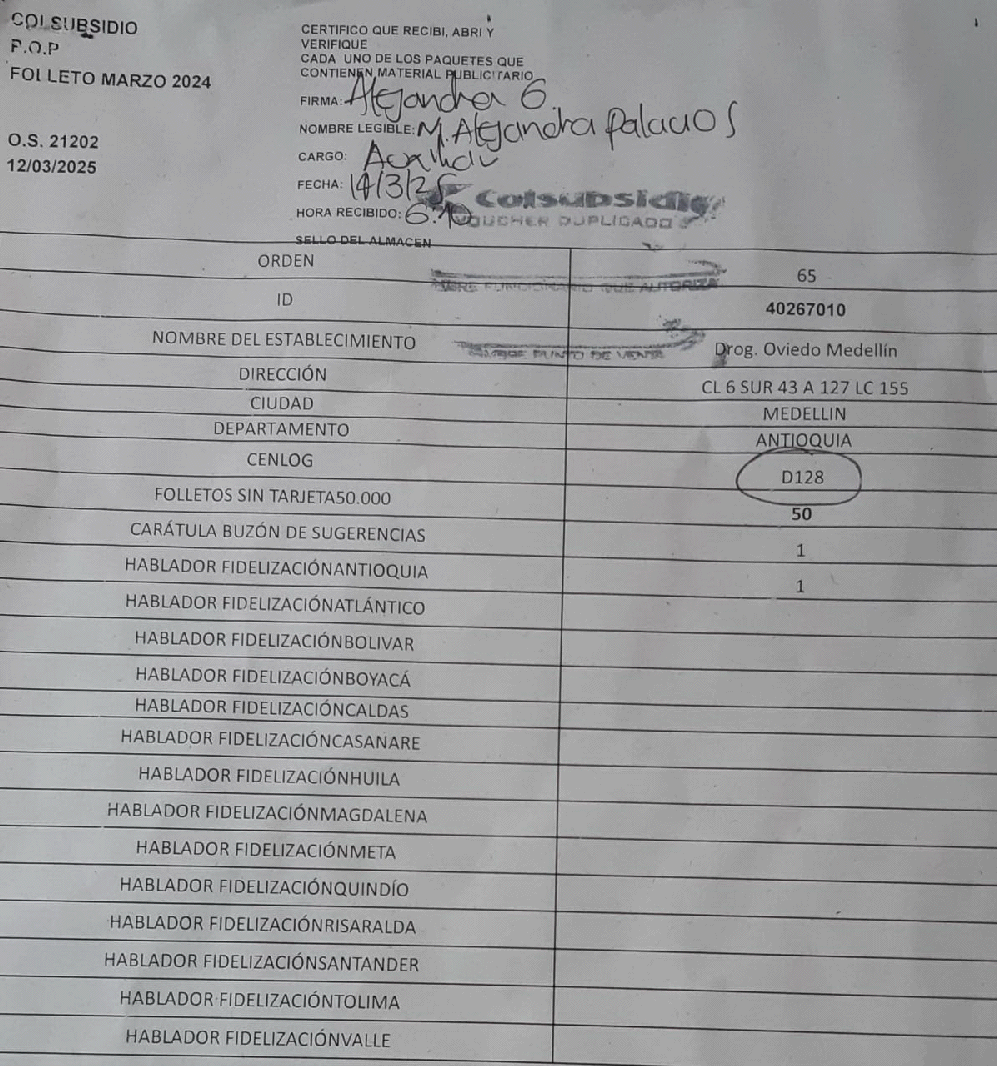 COLSUBSIDIO
P.O.P
FOLLETO MARZO 2024
O.S. 21202
12/03/2025
CERTIFICO QUE RECIBI, ABRI Y
VERIFIQUE
CADA UNO DE LOS PAQUETES QUE
CONTIENEN MATERIAL PUBLICITARIO
FIRMA: Alejandra G.
NOMBRE LEGIBLE: M. Alejandra Palacios
CARGO: Auxiliar
FECHA: 14/3/25
HORA RECIBIDO:
SELLO DEL ALMACEN
Colsubsidio
VOUCHER DUPLICADO
FUNCIONARIO QUE AUTORIZA
PUNTO DE VENTA
ORDEN 65
ID 40267010
NOMBRE DEL ESTABLECIMIENTO Drog. Oviedo Medellín
DIRECCIÓN CL 6 SUR 43 A 127 LC 155
CIUDAD MEDELLIN
DEPARTAMENTO ANTIOQUIA
CENLOG D128
FOLLETOS SIN TARJETA50.000 50
CARÁTULA BUZÓN DE SUGERENCIAS 1
HABLADOR FIDELIZACIÓNANTIOQUIA 1
HABLADOR FIDELIZACIÓNATLÁNTICO
HABLADOR FIDELIZACIÓNBOLIVAR
HABLADOR FIDELIZACIÓNBOYACÁ
HABLADOR FIDELIZACIÓNCALDAS
HABLADOR FIDELIZACIÓNCASANARE
HABLADOR FIDELIZACIÓNHUILA
HABLADOR FIDELIZACIÓNMAGDALENA
HABLADOR FIDELIZACIÓNMETA
HABLADOR FIDELIZACIÓNQUINDÍO
HABLADOR FIDELIZACIÓNRISARALDA
HABLADOR FIDELIZACIÓNSANTANDER
HABLADOR FIDELIZACIÓNTOLIMA
HABLADOR FIDELIZACIÓNVALLE